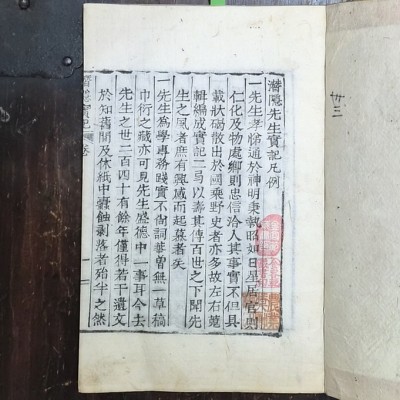 潛隱先生實記凡例
一先生孝悌通於神明秉執昭如日星居官則
仁化及物處鄉則忠信洽人其事實不但具
載狀碣散出於國乘野史者亦多故左右蒐
輯編成實記二弓以壽其傳百世之下聞先
生之風者庶有興感而起慕者矣
一先生爲學專務踐實不尙詞華曾無一草稿
巾衍之藏亦可見先生盛德中一事耳今去
先生之世二百四十有餘年僅得若干遺文
於知舊間及休紙中蠹蝕剝落者殆半之然